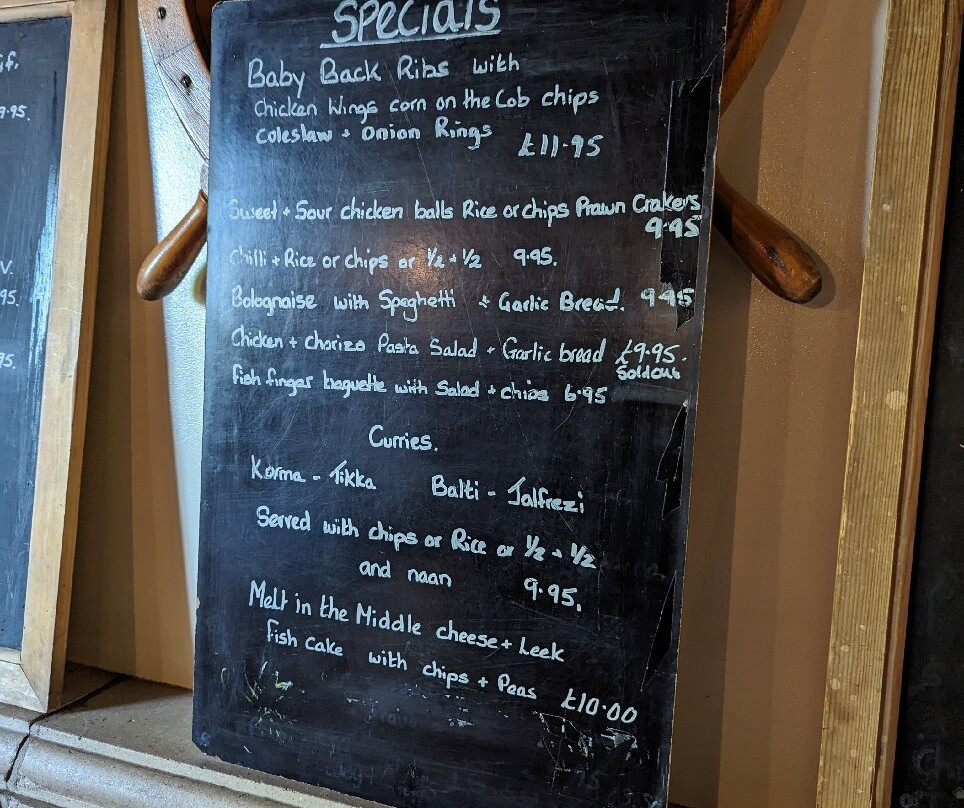 Specials
Baby Back Ribs with
chicken Wings corn on the Cob chips
coleslaw + Onion Rings
£11.95
Sweet + Sour chicken balls Rice or chips Prawn Crakers
9.95
Chilli + Rice or chips or ½ + ½ 9.95.
Bolognaise with Spaghetti + Garlic Bread. 9.95
Chicken + chorizo Pasta Salad + Garlic bread £9.95.
Sold out
fish finger baguette with Salad + chips 6.95
Curries.
Korma - Tikka Balti - Jalfrezi
Served with chips or Rice or ½ + ½
and naan 9.95.
Melt in the Middle cheese + Leek
fish cake with chips + Peas £10.00
9.95.
V.
95.
95.